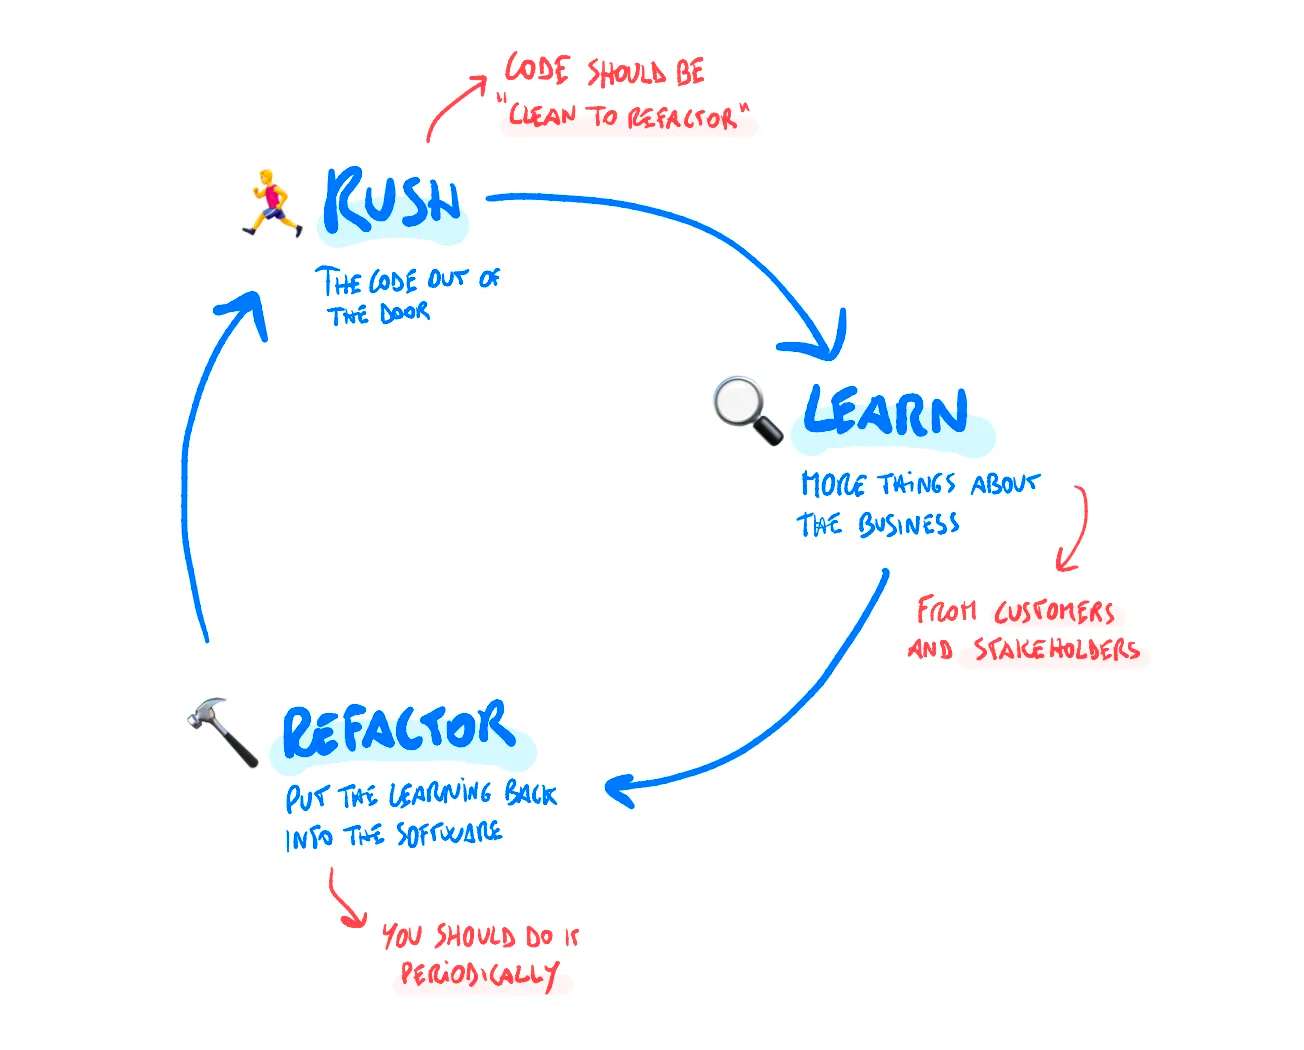 CODE SHOULD BE
"CLEAN TO REFACTOR"
RUSH
THE CODE OUT OF
THE DOOR
LEARN
MORE THINGS ABOUT
THE BUSINESS
FROM CUSTOMERS
AND STAKEHOLDERS
REFACTOR
PUT THE LEARNING BACK
INTO THE SOFTWARE
YOU SHOULD DO IT
PERIODICALLY